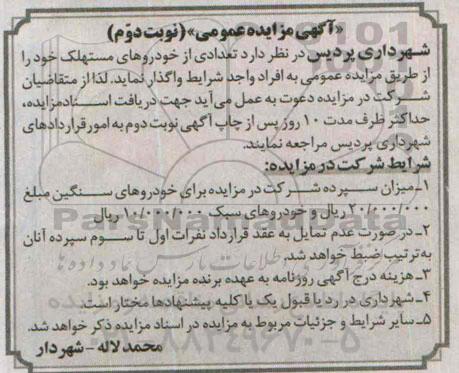 «آگهی مزایده عمومی» (نوبت دوّم)
شهرداری پردیس در نظر دارد تعدادی از خودروهای مستهلک خود را
از طریق مزایده عمومی به افراد واجد شرایط واگذار نماید. لذا از متقاضیان
شرکت در مزایده دعوت به عمل می‌آید جهت دریافت اسناد مزایده،
حداکثر ظرف مدت ۱۰ روز پس از چاپ آگهی نوبت دوم به امور قراردادهای
شهرداری پردیس مراجعه نمایند.
شرایط شرکت در مزایده:
۱ـ میزان سپرده شرکت در مزایده برای خودروهای سنگین مبلغ
۲۰/۰۰۰/۰۰۰ ریال و خودروهای سبک ۱۰/۰۰۰/۰۰۰ ریال
۲ـ در صورت عدم تمایل به عقد قرارداد نفرات اول تا سوم سپرده آنان
به ترتیب ضبط خواهد شد.
۳ـ هزینه درج آگهی روزنامه به عهده برنده مزایده خواهد بود.
۴ـ شهرداری در رد یا قبول یک یا کلیه پیشنهادها مختار است.
۵ـ سایر شرایط و جزئیات مربوط به مزایده در اسناد مزایده ذکر خواهد شد.
محمد لاله - شهردار
ParsNamadData
۸۸۳۴۹۶۷۰-۵